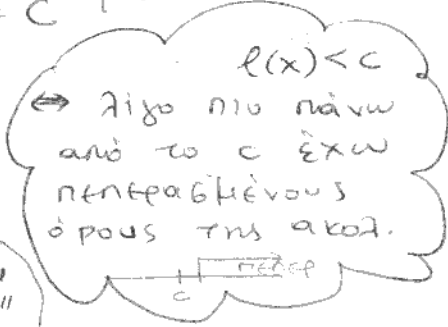 C
ℓ(x) < c
⇔ λίγο πιο πάνω
από το c έχω
πεπερασμένους
όρους της ακολ.
πεπερ
c
"